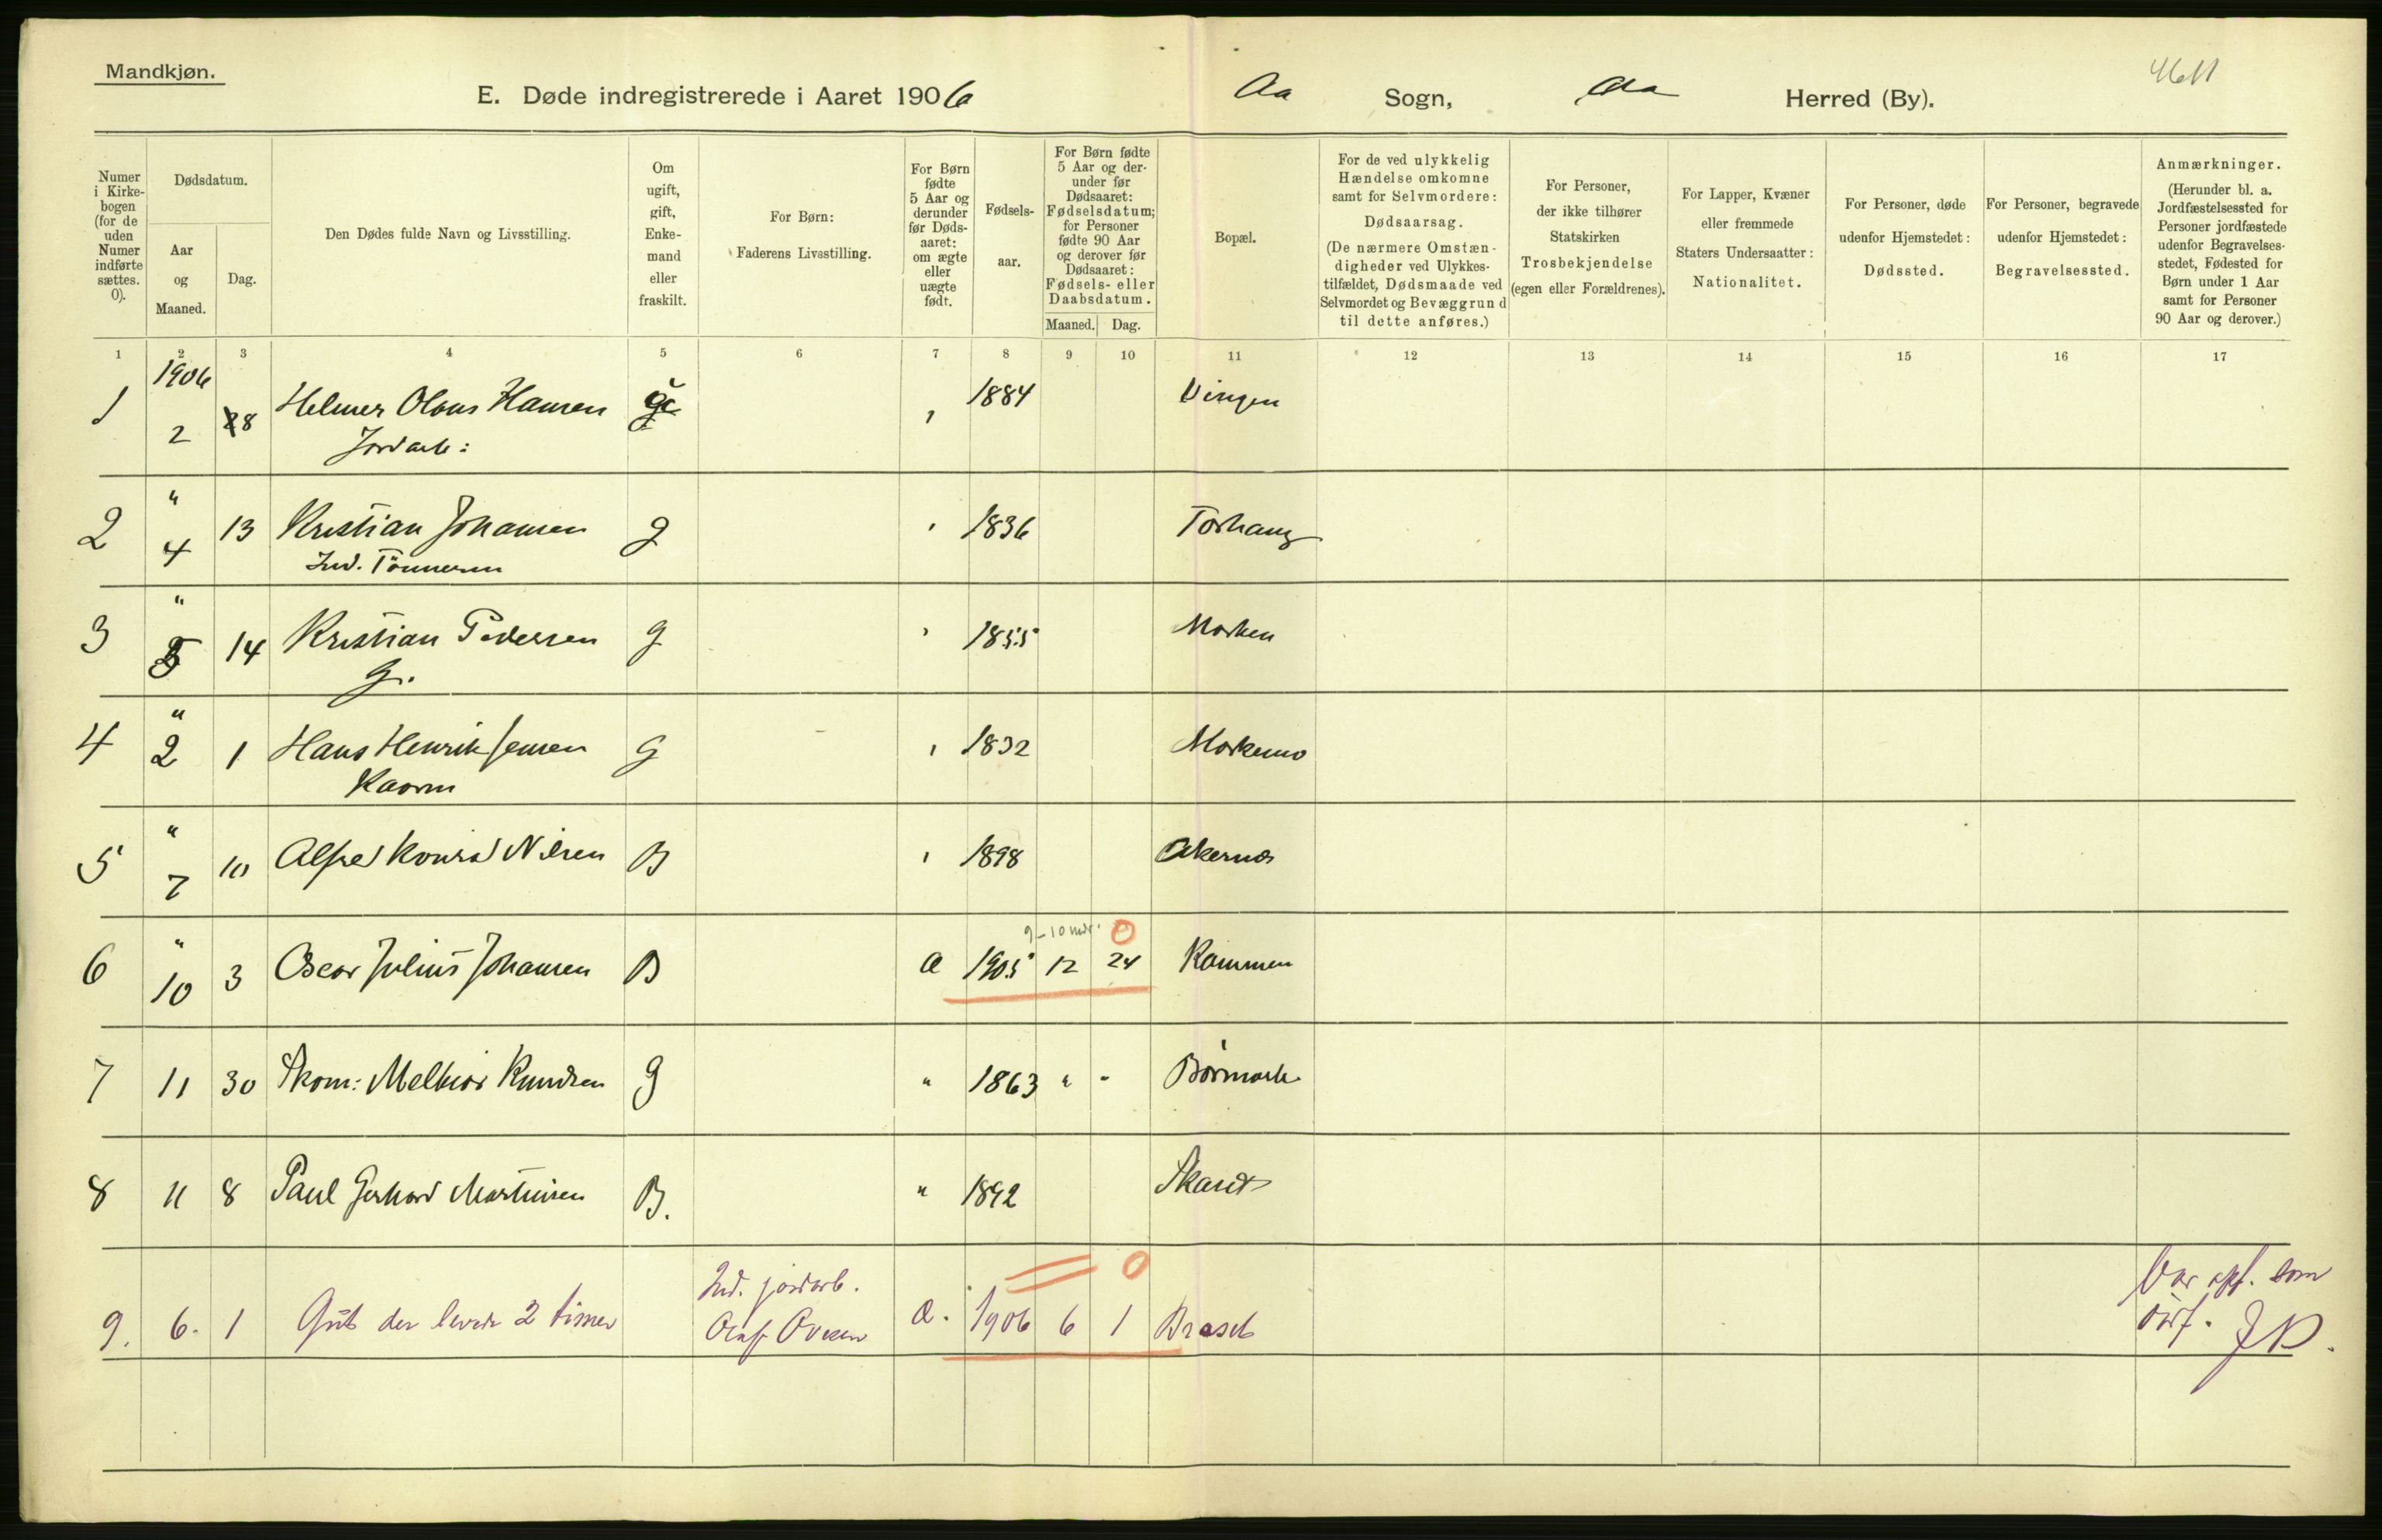 Mandkjøn.
E. Døde indregistrerede i Aaret 1906
Aa Sogn, Aa Herred (By).
Numer
i Kirke-
bogen
(for de
uden
Numer
indførte
sættes.
0).
Dødsdatum.
Aar
og
Maaned.
Dag.
Den Dødes fulde Navn og Livsstilling.
Om
ugift,
gift,
Enke-
mand
eller
fraskilt.
For Børn:
Faderens Livsstilling.
For Børn
fødte
5 Aar og
derunder
før Døds-
aaret:
om ægte
eller
uægte
født.
Fødsels-
aar.
For Børn fødte
5 Aar og der-
under før
Dødsaaret:
Fødselsdatum;
for Personer
fødte 90 Aar
og derover før
Dødsaaret:
Fødsels- eller
Daabsdatum.
Maaned. Dag.
Bopæl.
For de ved ulykkelig
Hændelse omkomne
samt for Selvmordere:
Dødsaarsag.
(De nærmere Omstæn-
digheder ved Ulykkes-
tilfældet, Dødsmaade ved
Selvmordet og Bevæggrund
til dette anføres.)
For Personer,
der ikke tilhører
Statskirken
Trosbekjendelse
(egen eller Forældrenes).
For Lapper, Kvæner
eller fremmede
Staters Undersaatter:
Nationalitet.
For Personer, døde
udenfor Hjemstedet:
Dødssted.
For Personer, begravede
udenfor Hjemstedet:
Begravelsessted.
Anmærkninger.
(Herunder bl. a.
Jordfæstelsessted for
Personer jordfæstede
udenfor Begravelses-
stedet, Fødested for
Børn under 1 Aar
samt for Personer
90 Aar og derover.)
1 2 3 4 5 6 7 8 9 10 11 12 13 14 15 16 17
1906
1 2 8 Helmer Olaus Hansen 1884 Vingen
Jordarb:
"
2 4 13 Kristian Johansen g 1836 Torhaug
Ind. Tönnesen
"
3 5 14 Kristian Pedersen g 1855 Morken
G.
"
4 2 1 Hans Henrik Jensen g 1832 Morkemo
Kaarm
"
5 7 10 Alfred Konrad Nilsen B 1898 Akernes
" 9-10 mdr. 0
6 10 3 Oscar Julius Johansen B a 1905 12 24 Kammen
7 11 30 Skom: Melkior Knudsen g " 1863 " - Börmark
8 11 8 Paul Gerhard Martinsen B. " 1892
0
9. 6. 1 Gut der levede 2 timer Ind. jordarb. a. 1906 6 1
Var opf. som